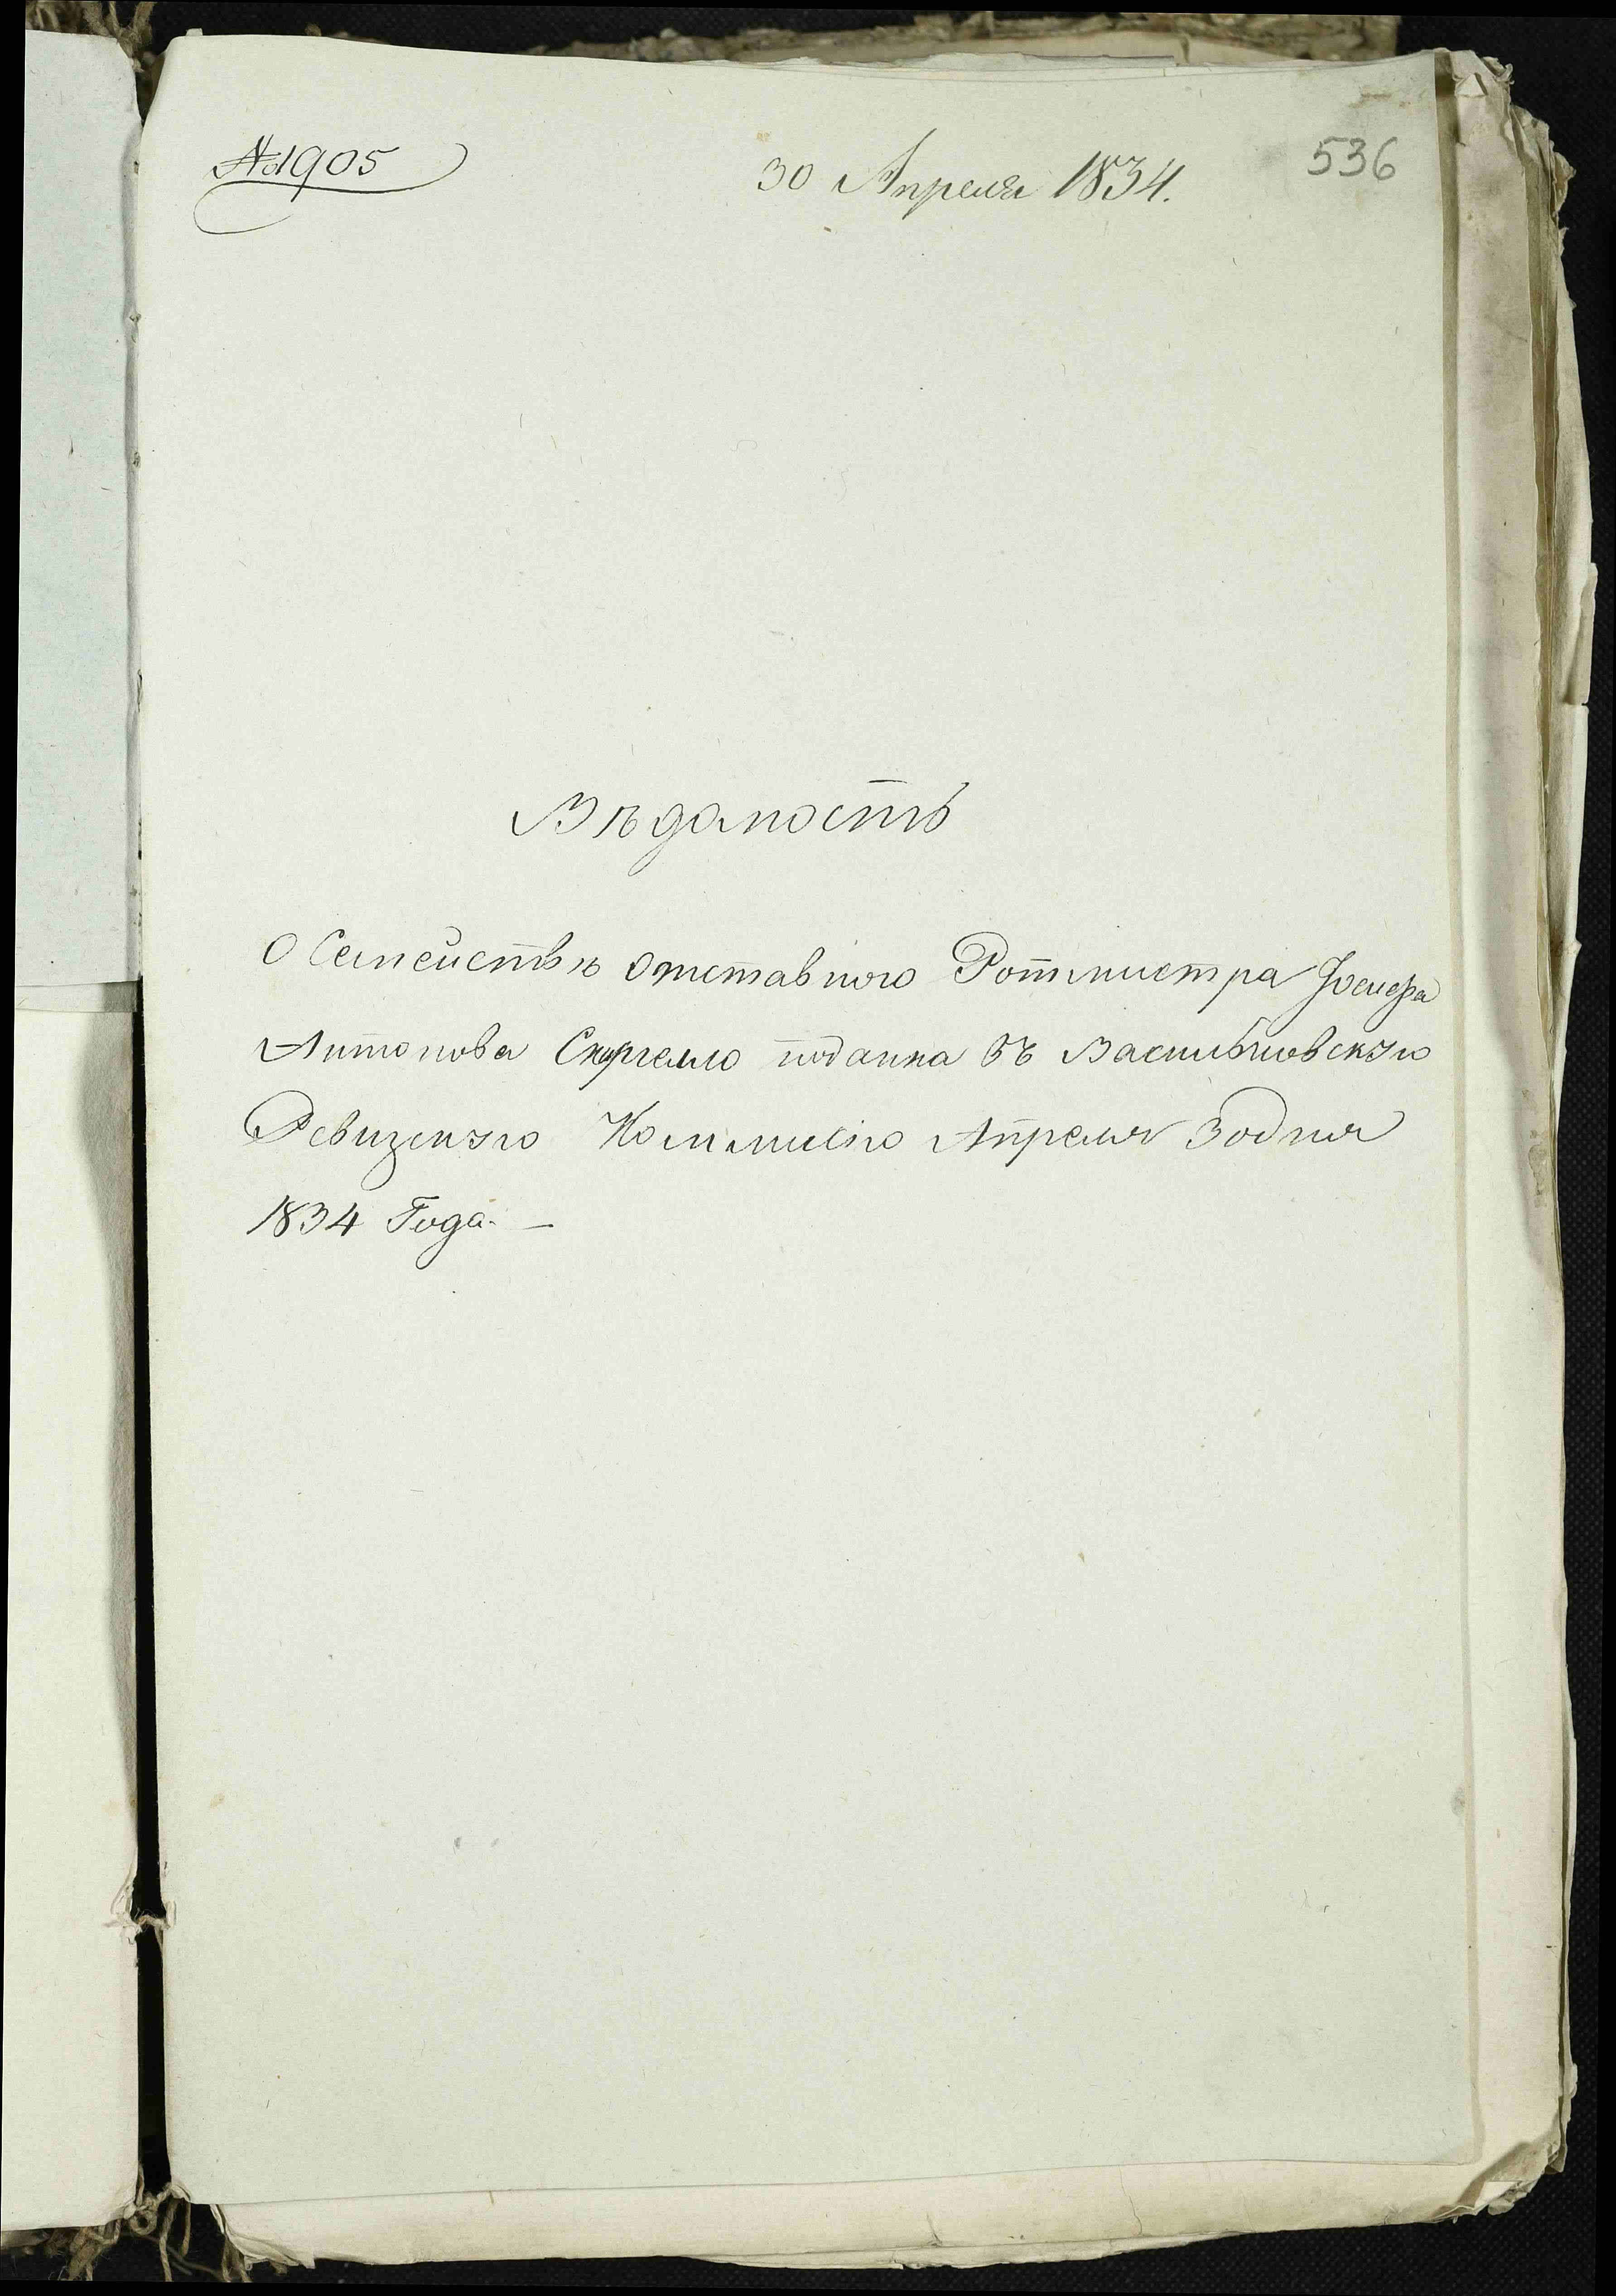 № 1905
30 Апреля 1834.
536
Вѣдамость
О Семействѣ Отставного Ротмистра Іосифа
Антонова поданна въ
Ревизскую Коммисію Апреля 30 дня
1834 Года. —